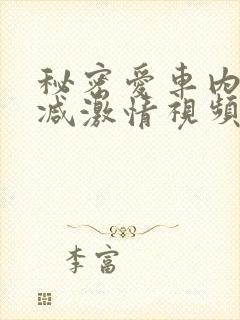 秘密愛車内
减激情視頻
李富